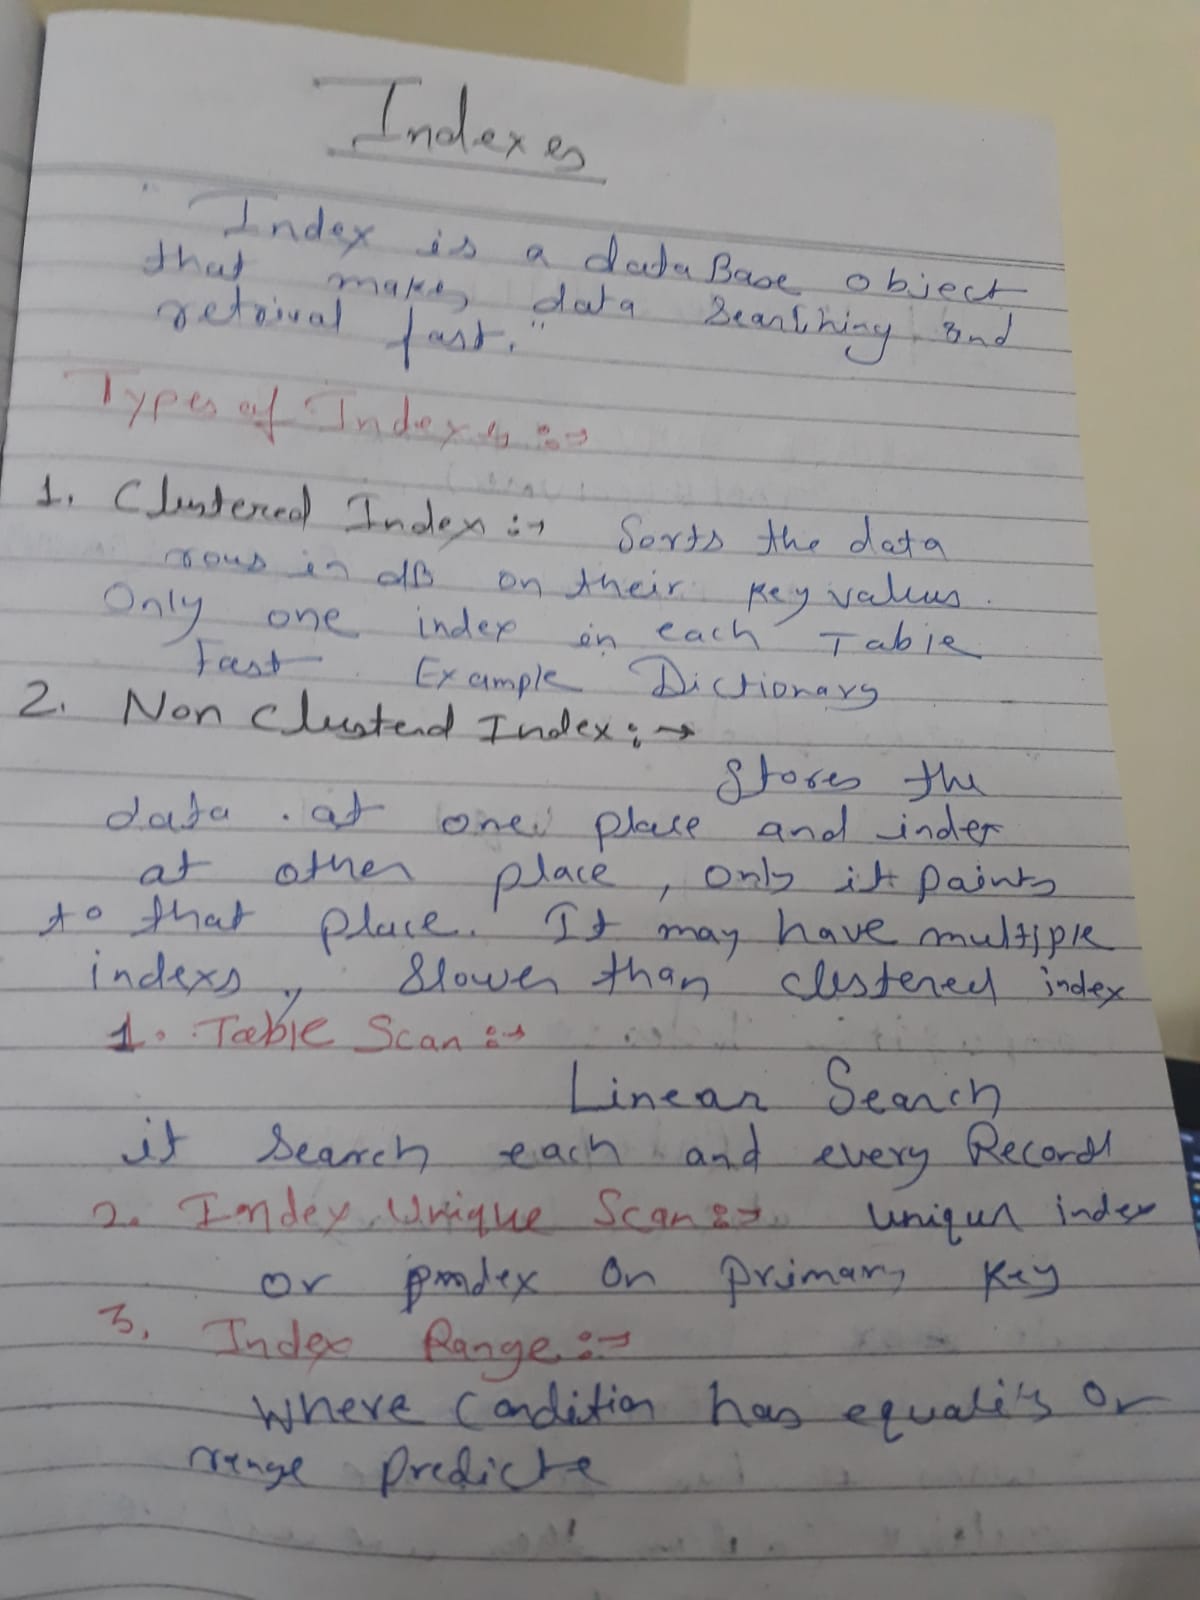 Indexes
"Index is a dataBase object
that makes data Searching and
retrival fast."
Types of Indexes :→
1. Clustered Index :→ Sorts the data
rows in dB on their key values.
Only one index in each Table
Fast Example Dictionary
2. Non Clusterd Index :→
Stores the
data at one place and index
at other place, only it points
to that place. It may have multiple
indexs, Slower than clustered index
1. Table Scan :→
Linear Search
it Search each and every Record
2. Index Unique Scan :→ unique index
or index on primary key
3. Index Range :→
Where Condition has equality or
range predicte